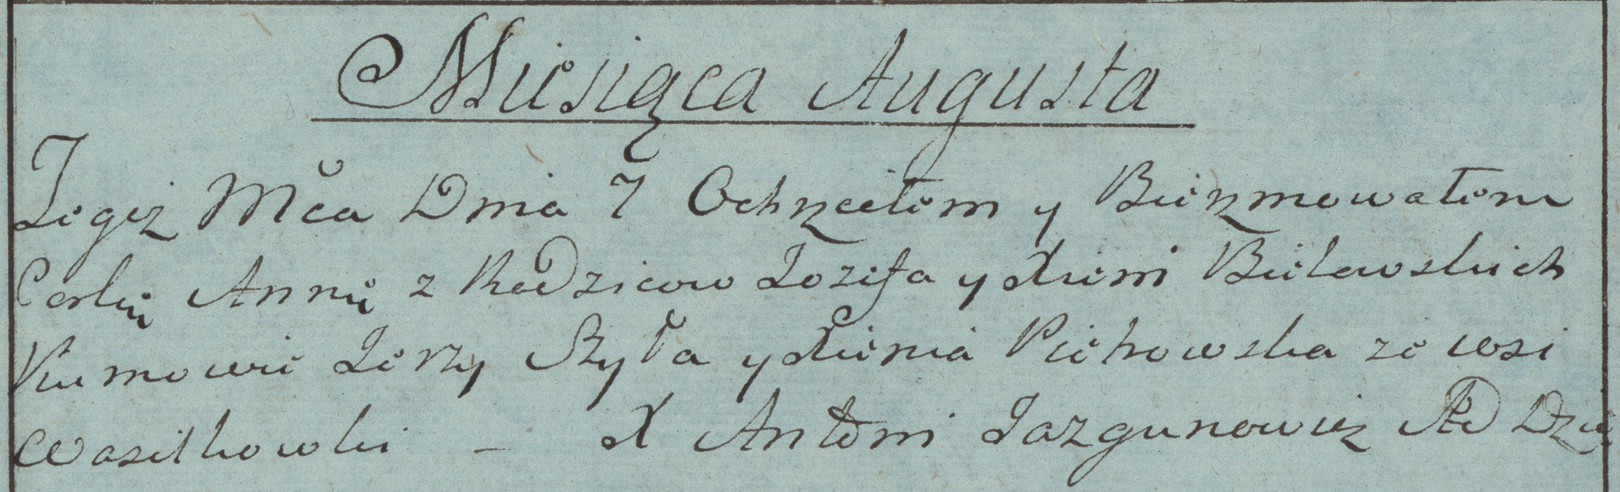 Miesiąca Augusta
Tegoż Mca Dnia 7 Ochrzciłem y Bierzmowałem
Corkę Annę z Rodzicow Jozefa y Xieni Bielawskich
Kumowie Jerzy Szyła y Xienia Piehowska ze wsi
Wasilkowki — X Antoni Jazgunowicz